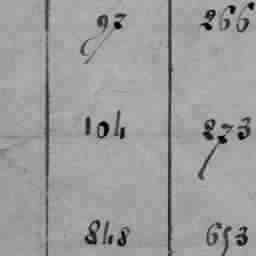 97 266
104 273
848 653